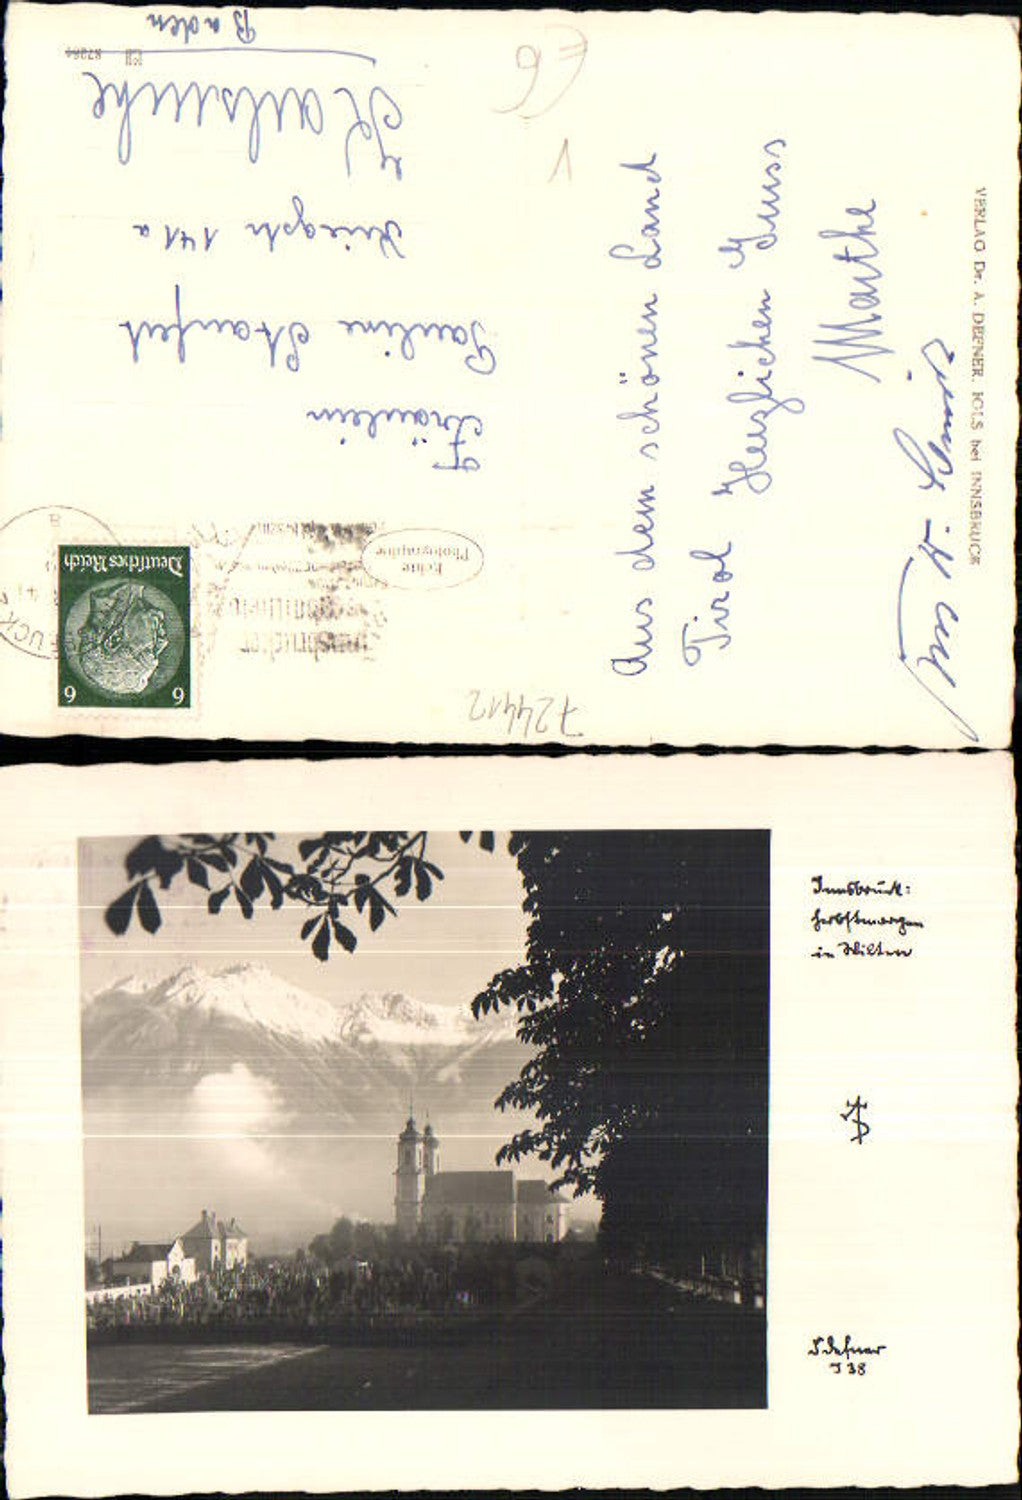 Aus dem schönen Land
Tirol Herzlichen Gruss
Marthe
Fräulein
Pauline
Kriegstr 141a
Karlsruhe
Baden
VERLAG Dr. A. DEFNER, IGLS bei INNSBRUCK
Echte
Photographie
Deutsches Reich
6 6
Innsbrucker
724412
€6
1
87284
Innsbruck:
Herbstmorgen
in Wilten
Defner
J 38